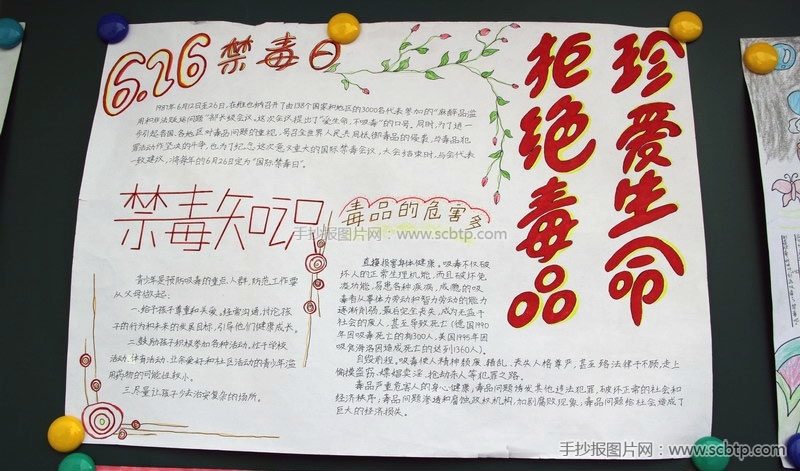 6.26 禁毒日
珍爱生命
拒绝毒品
1987年6月12日至26日,在维也纳召开了由138个国家和地区的3000名代表参加的“麻醉品滥
用和非法贩运问题”部长级会议。这次会议提出了“爱生命,不吸毒”的口号。同时,为了进一
步引起各国、各地区对毒品问题的重视,号召全世界人民共同抵御毒品的侵袭,与毒品犯
罪活动作坚决的斗争,也为了纪念这次意义重大的国际禁毒会议,大会结束时,与会代表
一致建议,将每年的6月26日定为“国际禁毒日”。
禁毒知识
青少年是预防吸毒的重点人群,防范工作要
从父母做起:
一.给予孩子尊重和关爱。经常沟通,讨论孩
子的行为和未来的发展目标,引导他们健康成长。
二.鼓励孩子积极参加各种活动。杜于学校
活动、体育活动、业余爱好和社区活动的青少年滥
用药物的可能性较小。
三.尽量让孩子少去治安复杂的场所。
毒品的危害多
直接损害身体健康。吸毒不仅破
坏人的正常生理机能,而且破坏免
疫功能,易患各种疾病,成瘾的吸
毒者从事体力劳动和智力劳动的能力
逐渐削弱,最后完全丧失,成为无益于
社会的废人,甚至导致死亡(德国1990
年因吸毒死亡的有300人,美国1995年因
吸食海洛因造成死亡的达到1360人)。
自毁前程。吸毒使人精神颓废、错乱、丧失人格尊严,甚至铬法律于不顾,走上
偷摸盗窃、嫖娼卖淫、抢劫杀人等犯罪之路。
毒品严重危害人的身心健康,毒品问题诱发其他违法犯罪,破坏正常的社会和
经济秩序;毒品问题渗透和腐蚀政权机构,加剧腐败现象;毒品问题给社会造成了
巨大的经济损失。
手抄报图片网:www.scbtp.com
手抄报图片网:www.scbtp.com